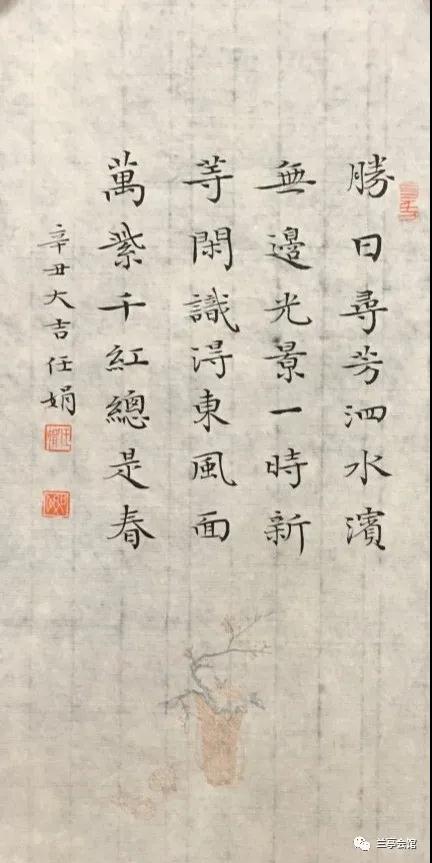 勝日尋芳泗水濱
無邊光景一時新
等閑識淂東風面
萬紫千紅總是春
辛丑大吉任娟
兰亭会馆